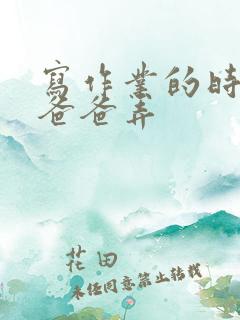 寫作業的時
爸爸弄
花田
未经同意禁止转载